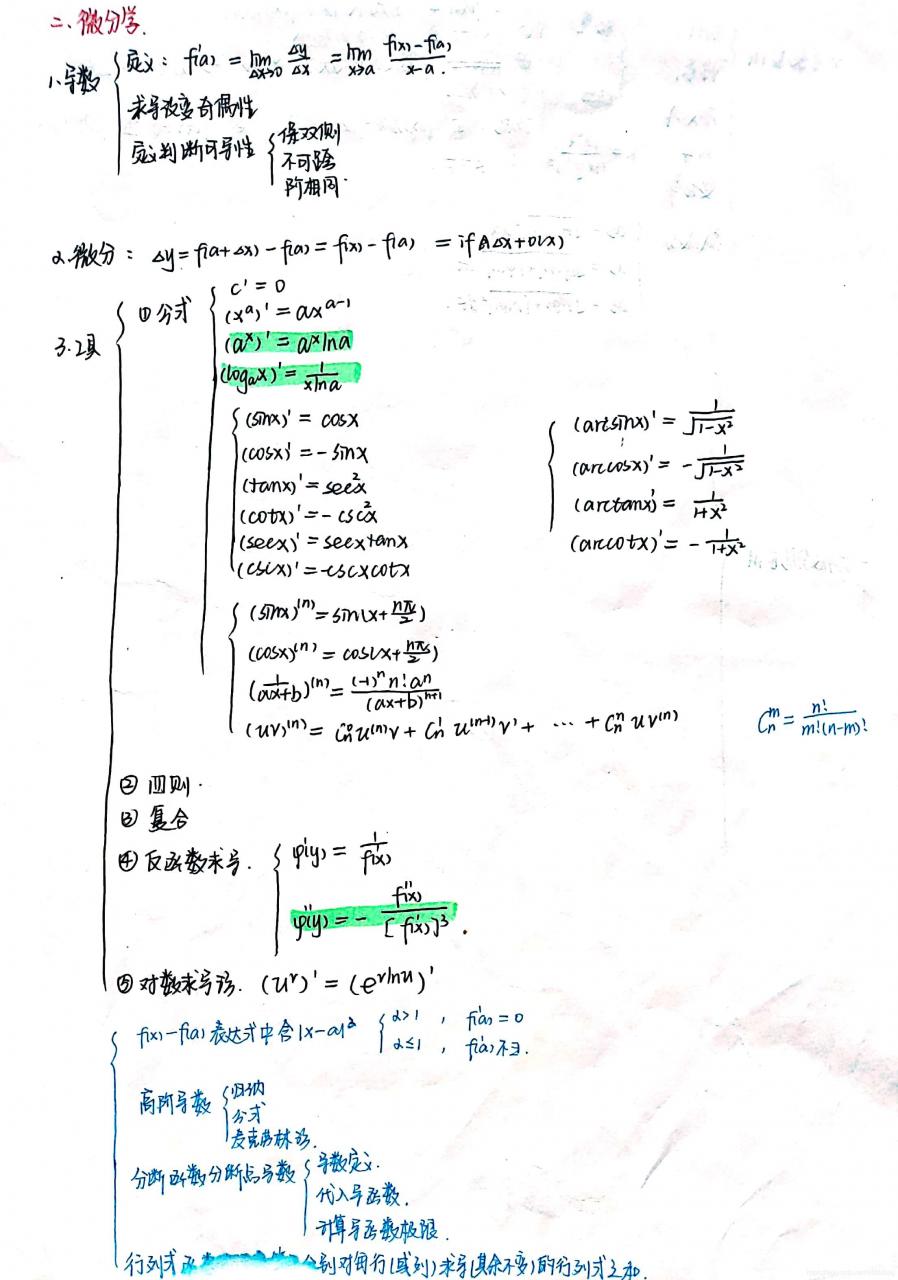 二、微分学.
1.导数
定义: f'(a) = lim Δx→0 Δy/Δx = lim x→a (f(x)-f(a))/(x-a).
求导改变奇偶性
定义判断可导性
保双侧
不可跨
阶相同.
2.微分: Δy=f(a+Δx)-f(a)=f(x)-f(a) =if AΔx+o(x)
3.工具
①公式
c'=0
(x^a)'=ax^(a-1)
(a^x)'=a^x lna
(log_a x)'=1/(xlna)
(sinx)'=cosx
(cosx)'=-sinx
(tanx)'=sec²x
(cotx)'=-csc²x
(secx)'=secxtanx
(cscx)'=-cscxcotx
(arcsinx)'=1/√(1-x²)
(arccosx)'=-1/√(1-x²)
(arctanx)'=1/(1+x²)
(arccotx)'=-1/(1+x²)
(sinx)^(n)=sin(x+nπ/2)
(cosx)^(n)=cos(x+nπ/2)
(1/(ax+b))^(n)=(-1)^n n! a^n/(ax+b)^(n+1)
(uv)^(n)=C_n^0 u^(n)v+C_n^1 u^(n-1)v'+ … +C_n^n uv^(n)
C_n^m=n!/(m!(n-m)!)
②四则.
③复合
④反函数求导.
φ'(y)=1/f'(x)
φ''(y)=-f''(x)/[f'(x)]³.
⑤对数求导法. (u^v)'=(e^(vlnu))'
f(x)-f(a)表达式中含|x-a|^α
α>1, f'(a)=0
α≤1, f'(a)不∃.
高阶导数
归纳
公式
麦克劳林法.
分断函数分断点导数
导数定义.
代入导函数.
计算导函数极限.
行列式 分别对每行(或列)求导(其余不变)的行列式之和.